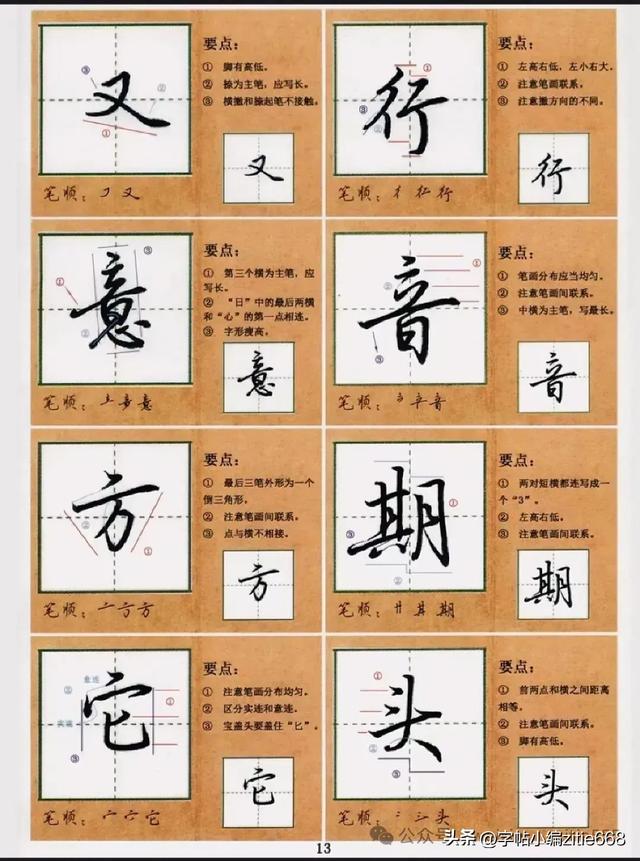 又
要点：
① 脚有高低。
② 捺为主笔，应写长。
③ 横撇和捺起笔不接触。
又
笔顺：フ又
行
要点：
① 左高右低，左小右大。
② 注意笔画联系。
③ 注意撇方向的不同。
行
笔顺：彳行
意
要点：
① 第三个横为主笔，应
写长。
② “日”中的最后两横
和“心”的第一点相连。
③ 字形瘦高。
意
笔顺：意
音
要点：
① 笔画分布应当均匀。
② 注意笔画间联系。
③ 中横为主笔，写最长。
音
笔顺：音
方
要点：
① 最后三笔外形为一个
倒三角形。
② 注意笔画间联系。
③ 点与横不相接。
方
笔顺：亠方方
期
要点：
① 两对短横都连写成一
个“3”。
② 左高右低。
③ 注意笔画间联系。
期
笔顺：廿其期
它
意连
实连
要点：
① 注意笔画分布均匀。
② 区分实连和意连。
③ 宝盖头要盖住“匕”。
它
笔顺：亠宀它
头
要点：
① 前两点和横之间距离
相等。
② 注意笔画间联系。
③ 脚有高低。
头
笔顺：头
13
公众号
头条 @字帖小编zitie668